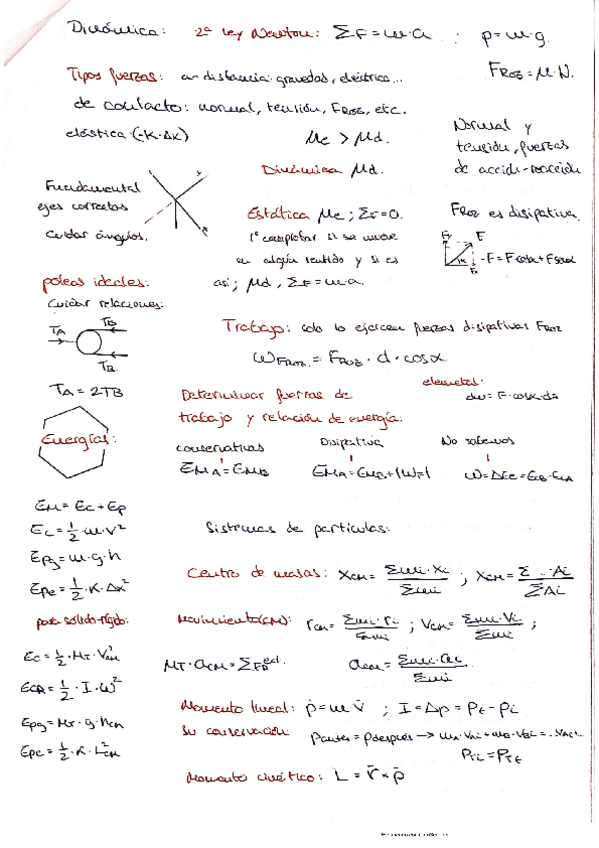 Dinámica: 2ª ley Newton: ΣF = m·a ; p = m·g.
Tipos fuerzas: a distancia: gravedad, eléctrica...
F_ROZ = μ·N.
de contacto: normal, tensión, F_ROZ, etc.
elástica (-K·Δx)
μe > μd.
Normal y
tensión, fuerzas
de acción-reacción
Dinámica μd.
Fundamental
ejes correctos
Cuidar ángulos.
Estática μe ; ΣF=0.
1º comprobar si se mueve
en algún sentido y si es
así; μd, ΣF = m·a.
F_ROZ es disipativa.
Fy F
α
Fx
F = F cosα + F senα
poleas ideales:
Cuidar relaciones:
TA TB
TB
TA = 2TB
Trabajo: solo lo ejercen fuerzas disipativas F_ROZ
W_FROZ = F_ROZ · d · cosα
elemental:
dw = F·cosα·dx
Determinar fuerzas de
trabajo y relación de energía:
Energías:
conservativas Disipativa No sabemos
E_MA = E_MB E_MA = E_MB + |W_F| W = ΔEc = E_CB - E_CA
E_M = Ec + Ep
Ec = 1/2 · m · v²
Epg = m·g·h
Epe = 1/2 · K · Δx²
Sistemas de partículas:
Centro de masas: X_CM = Σmi·xi / Σmi ; X_CM = Σ ... Ai / ΣAi
para sólido-rígido:
Movimiento (CM): r_CM = Σmi·ri / Σmi ; V_CM = Σmi·Vi / Σmi ;
Ec = 1/2 · M_T · V²_CM
M_T · a_CM = ΣF ext. a_CM = Σmi·ai / Σmi
E_CR = 1/2 · I · ω²
Epg = M_T · g · h_CM
Epe = 1/2 · K · L²_CM
Momento lineal: p̄ = m·v̄ ; I = Δp = pf - pi
Su conservación: p antes = p después → mA·VAi + mB·VBi =
P_Ti = P_Tf
Momento cinético: L = r̄ × p̄